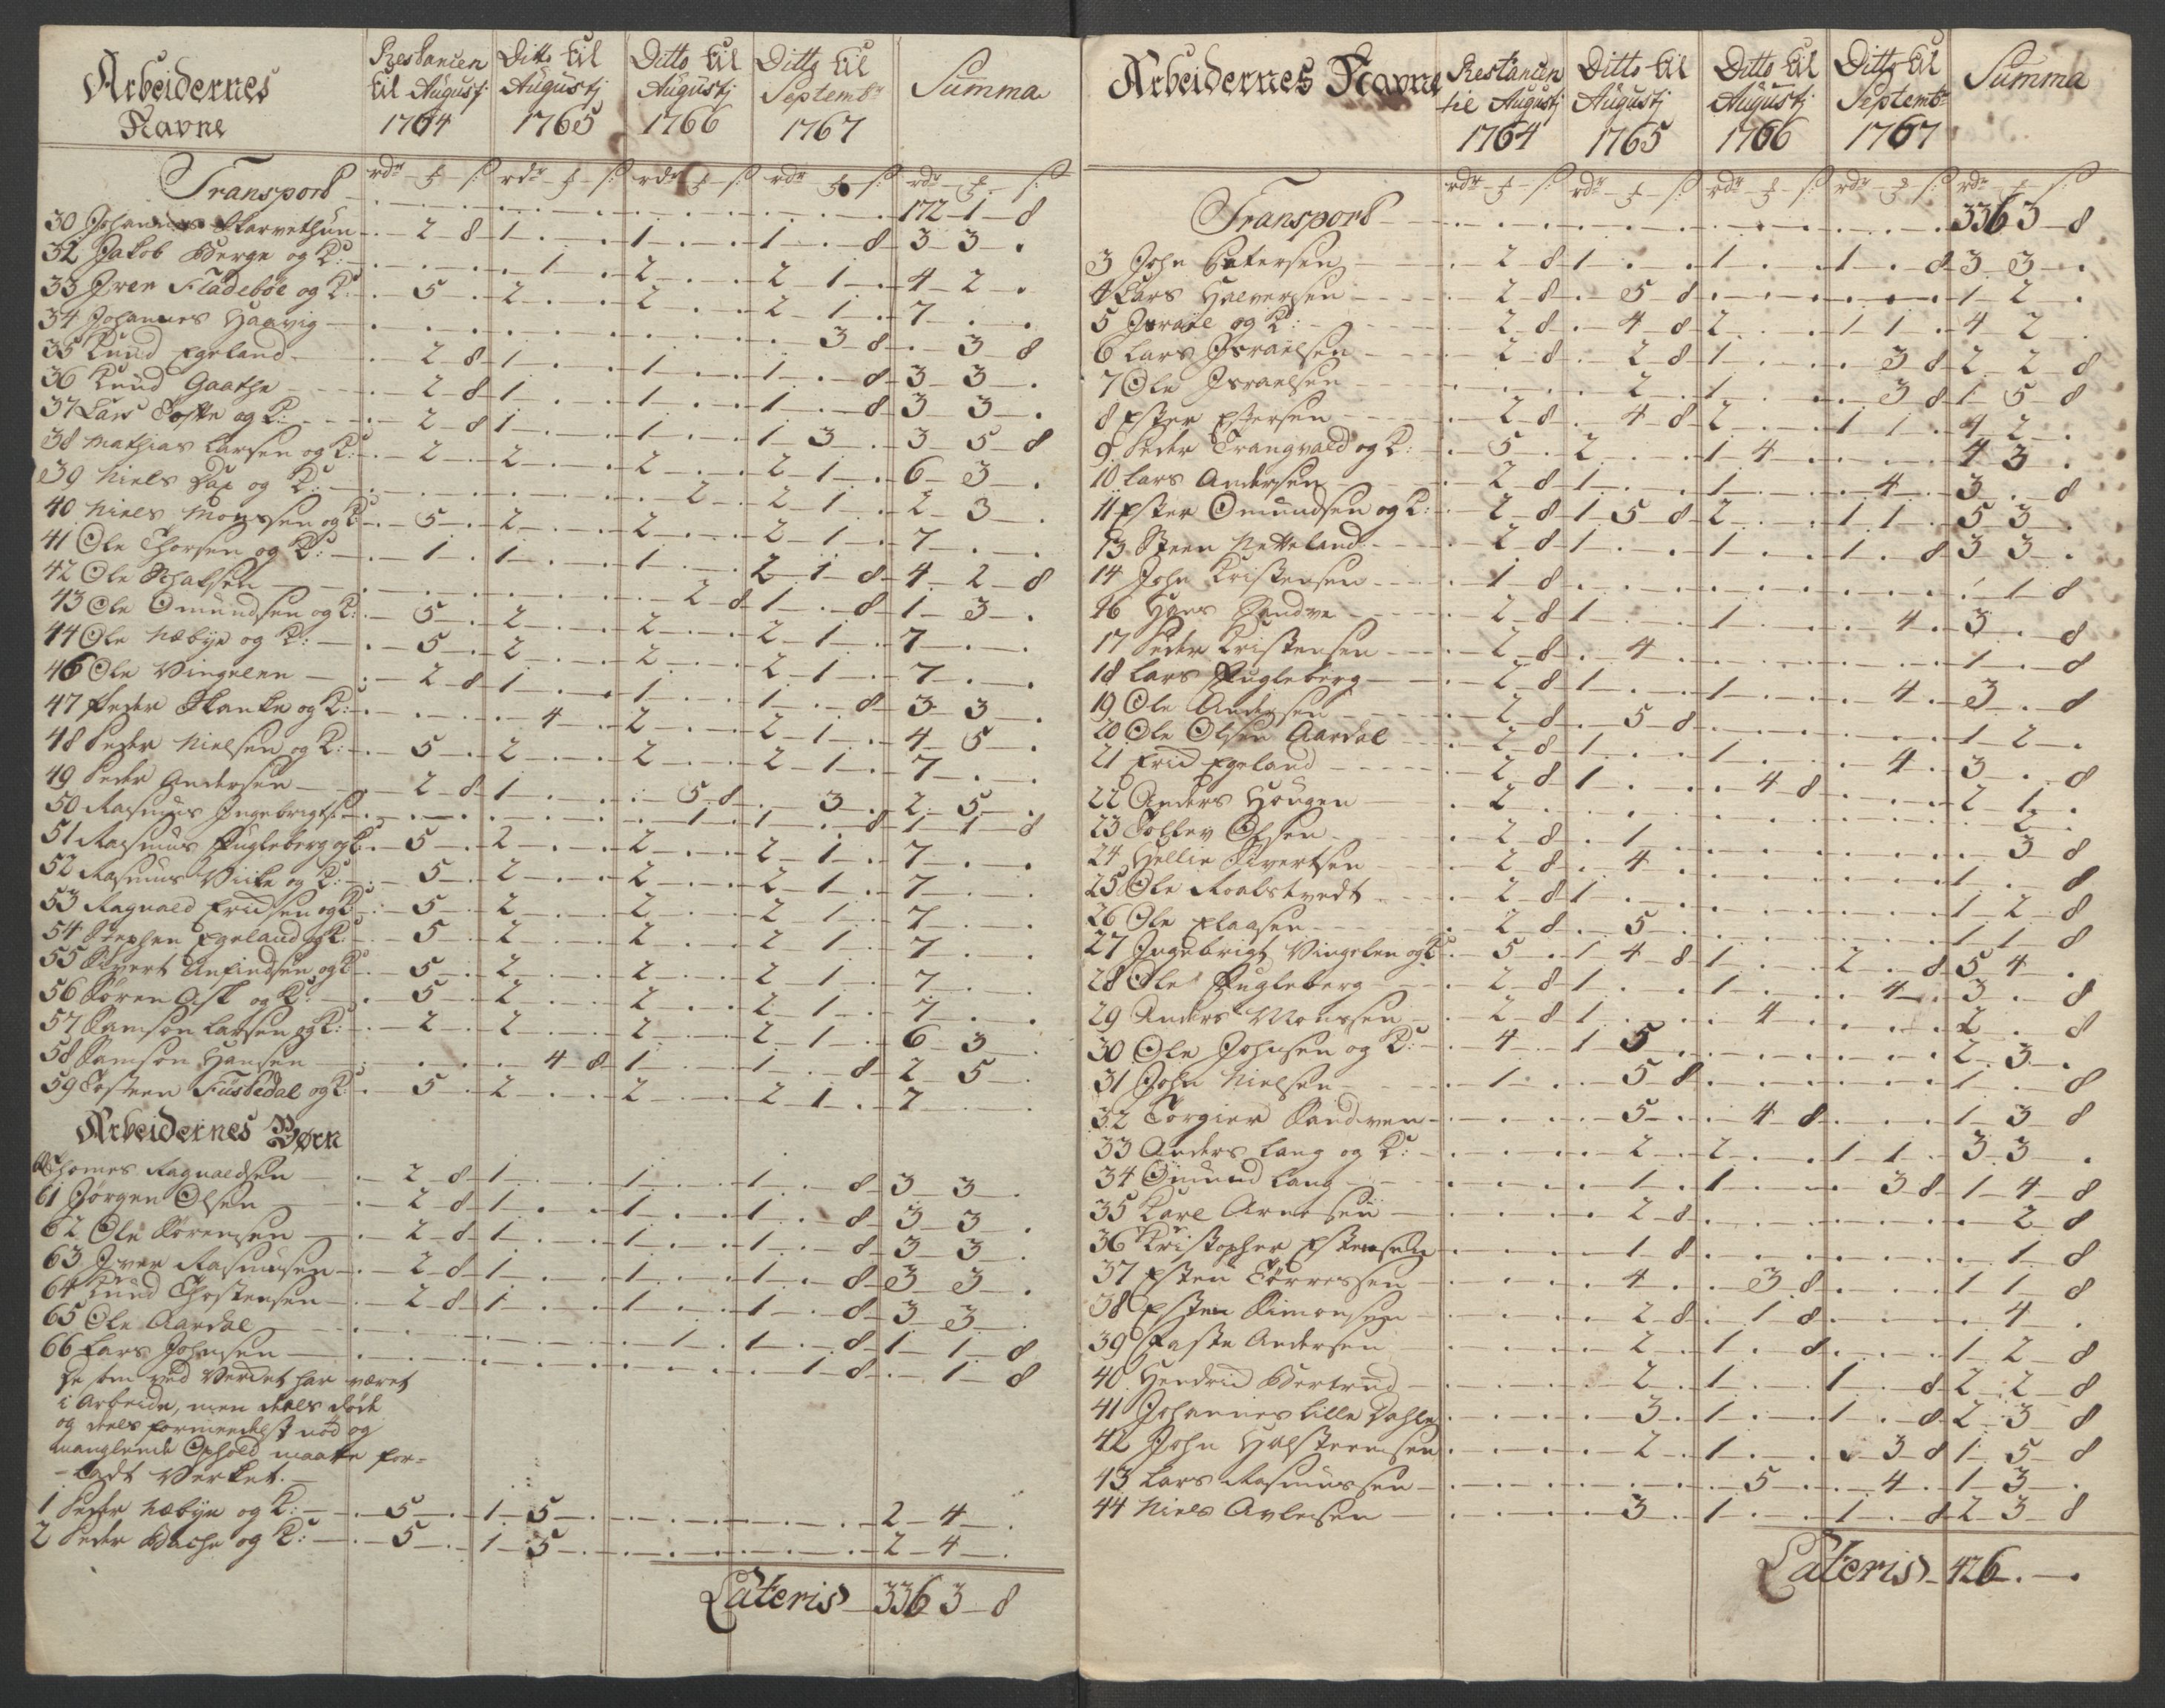 Arbeidernes Navne | Restancen til Augustj 1764 | Ditto til Augustj 1765 | Ditto til Augustj 1766 | Ditto til Septembr 1767 | Summa
rdr ʒ s: | rdr ʒ s: | rdr ʒ s: | rdr ʒ s: | rdr ʒ s:
Transport 172 - 1 - 8
30 Johannes Skarvethun - 2 8 | 1 . . | 1 . . | 1 . 8 | 3 3 .
32 Jakob Berge og K: . . . | . 1 . | 2 . . | 2 1 . | 4 2 .
33 Iver Fladebøe og K: . 5 . | 2 . . | 2 . . | 2 1 . | 7 . .
34 Johannes Haavig . . . | . . . | . . . | . 3 8 | . 3 8
35 Knud Egeland . 2 8 | 1 . . | 1 . . | 1 . 8 | 3 3 .
36 Knud Gaathe . 2 8 | 1 . . | 1 . . | 1 . 8 | 3 3 .
37 Lars Tofte og K: . 2 8 | 1 . . | 1 . . | 1 3 . | 3 5 8
38 Mathias Larsen og K: . 2 . | 2 . . | 2 . . | 2 1 . | 6 3 .
39 Niels Dax og K: . . . | . . . | . 2 . | 2 1 . | 2 3 .
40 Niels Monssen og K . 5 . | 2 . . | 2 . . | 2 1 . | 7 . .
41 Ole Thorsen og K: . 1 . | 1 . . | 1 . . | 2 1 8 | 4 2 8
42 Ole . . . | . . . | . 2 8 | 1 . 8 | 1 3 .
43 Ole Omundsen og K: . 5 . | 2 . . | 2 . . | 2 1 . | 7 . .
44 Ole Næbye og K: . 5 . | 2 . . | 2 . . | 2 1 . | 7 . .
46 Ole Vingelen . 2 8 | 1 . . | 1 . . | 1 . 8 | 3 3 .
47 Peder Skanke og K: . . . | . 4 . | 2 . . | 2 1 . | 4 5 .
48 Peder Nielsen og K: . 5 . | 2 . . | 2 . . | 2 1 . | 7 . .
49 Peder Andersen . 2 8 | 1 . . | . 5 8 | . 3 . | 2 5 .
50 Rasmus Ingebrigts: . . . | . . . | . 1 . | 1 . 8 | 1 1 8
51 Rasmus Fugleberg og K: . 5 . | 2 . . | 2 . . | 2 1 . | 7 . .
52 Rasmus Viike og K: . 5 . | 2 . . | 2 . . | 2 1 . | 7 . .
53 Ragnald Ericsen og K . 5 . | 2 . . | 2 . . | 2 1 . | 7 . .
54 Stephen Egeland og K: . 5 . | 2 . . | 2 . . | 2 1 . | 7 . .
55 Sivert Anfindsen og K . 5 . | 2 . . | 2 . . | 2 1 . | 7 . .
56 Søren Ask og K: . 5 . | 2 . . | 2 . . | 2 1 . | 7 . .
57 Samson Larsen og K: . 2 . | 2 . . | 2 . . | 2 1 . | 6 3 .
58 Samson Hansen . . . | . 4 8 | 1 . . | 1 . 8 | 2 5 .
59 Tosteen Fuskedal og K . 5 . | 2 . . | 2 . . | 2 1 . | 7 . .
Arbeidernes Børn
Thomes Ragnaldsen . 2 8 | 1 . . | 1 . . | 1 . 8 | 3 3 .
61 Jørgen Olsen . 2 8 | 1 . . | 1 . . | 1 . 8 | 3 3 .
62 Ole Sørensen . 2 8 | 1 . . | 1 . . | 1 . 8 | 3 3 .
63 Iver Rasmusen . 2 8 | 1 . . | 1 . . | 1 . 8 | 3 3 .
64 Knud Thostensen . 2 8 | 1 . . | 1 . . | 1 . 8 | 3 3 .
65 Ole Aardal . . . | . . . | . 1 . | 1 . 8 | 1 1 8
66 Lars Johnsen . . . | . . . | . . . | . 1 8 | . 1 8
De som ved Verket har været
i Arbeide, men deels døde
og deels formedelst nød og
manglende Ophold maatte for-
-ladt Verket.
1 Peder Næbye og K: . 5 . | 1 5 . | . . . | . . . | 2 4 .
2 Peder Bache og K: . 5 . | 1 5 . | . . . | . . . | 2 4 .
Lateris 336 3 8
Arbeidernes Navne | Restancen til Augustj 1764 | Ditto til Augustj 1765 | Ditto til Augustj 1766 | Ditto til Septembr 1767 | Summa
rdr ʒ s: | rdr ʒ s: | rdr ʒ s: | rdr ʒ s: | rdr ʒ s:
Transport 336 3 8
3 John Petersen . 2 8 | 1 . . | 1 . . | 1 . 8 | 3 3 .
4 Lars Halversen . 2 8 | . 5 8 | . . . | . . . | 1 2 .
5 Israel og K: . 2 8 | . 4 8 | 2 . . | 1 1 . | 4 2 .
6 Lars Israelsen . 2 8 | . 2 8 | 1 . . | . 3 8 | 2 2 8
7 Ole Israelsen . . . | . 2 . | 1 . . | . 3 8 | 1 5 8
8 Ester Estersen . 2 8 | . 4 8 | 2 . . | 1 1 . | 4 2 .
9 Peder Trangvald og K: . 5 . | 2 . . | 1 4 . | . . . | 4 3 .
10 Lars Andersen . 2 8 | 1 . . | 1 . . | . 4 . | 3 . 8
11 Ester Omundsen og K: . 2 8 | 1 5 8 | 2 . . | 1 1 . | 5 3 .
13 Steen Netteland . 2 8 | 1 . . | 1 . . | 1 . 8 | 3 3 .
14 John Kristensen . 1 8 | . . . | . . . | . . . | . 1 8
16 Hans Sandve . 2 8 | 1 . . | 1 . . | . 4 . | 3 . 8
17 Peder Kristensen . 2 8 | . 4 . | . . . | . . . | 1 . 8
18 Lars Fugleberg . 2 8 | 1 . . | 1 . . | . 4 . | 3 . 8
19 Ole Andersen . 2 8 | . 5 8 | . . . | . . . | 1 2 .
20 Ole Olsen Aardal . 2 8 | 1 . . | 1 . . | . 4 . | 3 . 8
21 Eric Egeland . 2 8 | 1 . . | . 4 8 | . . . | 2 1 .
22 Anders Hougen . 2 . | . . . | . . . | . . . | . 2 .
23 Tollev Olsen . 2 8 | . 1 . | . . . | . . . | . 3 8
24 Hellie Sivertsen . 2 8 | . 4 . | . . . | . . . | 1 . 8
25 Ole Roalstvedt . 2 8 | 1 . . | . . . | . . . | 1 2 8
26 Ole Claasen . 2 8 | . 5 . | . . . | . . . | 1 1 8
27 Ingebrigt Vingelen og K . 5 . | 1 4 8 | 1 . . | 2 . 8 | 5 4 .
28 Ole Fugleberg . 2 8 | 1 . . | 1 . . | . 4 . | 3 . 8
29 Anders Monssen . 2 8 | 1 . . | . 4 . | . . . | 2 . 8
30 Ole Johnsen og K: . 4 . | 1 5 . | . . . | . . . | 2 3 .
31 John Nielsen . 1 . | . 5 8 | . . . | . . . | 1 . 8
32 Torgier Sandven . . . | . 5 . | . 4 8 | . . . | 1 3 8
33 Anders Lang og K: . . . | . 2 . | 2 . . | 1 1 . | 3 3 .
34 Omund Lang . . . | . 1 . | 1 . . | . 3 8 | 1 4 8
35 Karl Arnesen . . . | . 2 8 | . . . | . . . | . 2 8
36 Kristopher Estensen . . . | . 1 8 | . . . | . . . | . 1 8
37 Esten Tørressen . . . | . 4 . | . 3 8 | . . . | 1 1 8
38 Esten Simonsen . . . | . 2 8 | . 1 8 | . . . | . 4 .
39 Faste Andersen . . . | . 2 . | 1 . 8 | . . . | 1 2 8
40 Hendric Bertrud . . . | . 2 . | 1 . . | 1 . 8 | 2 2 8
41 Johannes Lille Dahle . . . | . 3 . | 1 . . | 1 . 8 | 2 3 8
42 John Halsteensen . . . | . 2 . | 1 . . | . 3 8 | 1 5 8
43 Lars Rasmussen . . . | . . . | . 5 . | . 4 . | 1 3 .
44 Niels Avlesen . . . | . 3 . | 1 . . | 1 . 8 | 2 3 8
Lateris 426 . .